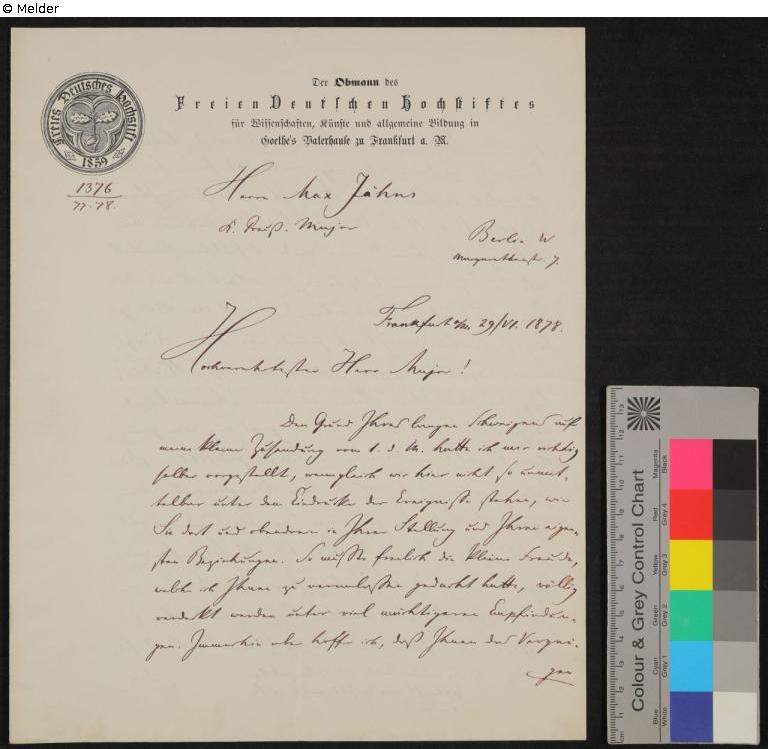 © Melder
Freies Deutsches Hochstift
1859
1376
77.78.
Der Obmann des
Freien Deutschen Hochstiftes
für Wissenschaften, Künste und allgemeine Bildung in
Goethe's Vaterhause zu Frankfurt a. M.
Herrn Max Jähns
K. Preuß. Major
Berlin W.
Margarethenstr. 7.
Frankfurt a/M. 29/VI. 1878.
Hochverehrtester Herr Major!
Den Grund Ihres langen Schweigens auf
meine kleine Zusendung vom 1. d. M. hatte ich mir richtig
selber vorgestellt, wenngleich wir hier nicht so unmit-
telbar unter dem Eindrucke der Ereignisse stehen, wie
Sie dort und obendrein in Ihrer Stellung und Ihren eigen-
sten Beziehungen. So mußte freilich die kleine Freude,
welche ich Ihnen zu veranlassen gedacht hatte, völlig
verdeckt werden unter viel wichtigeren Empfindun-
gen. Immerhin aber hoffe ich, daß Ihnen das Vergnü-
gen
Colour & Grey Control Chart
Blue
Cyan
Green
Yellow
Red
Magenta
White
Grey 1
Grey 2
Grey 3
Grey 4
Black
cm 1 2 3 4 5 6 7 8 9 10 11 12 13